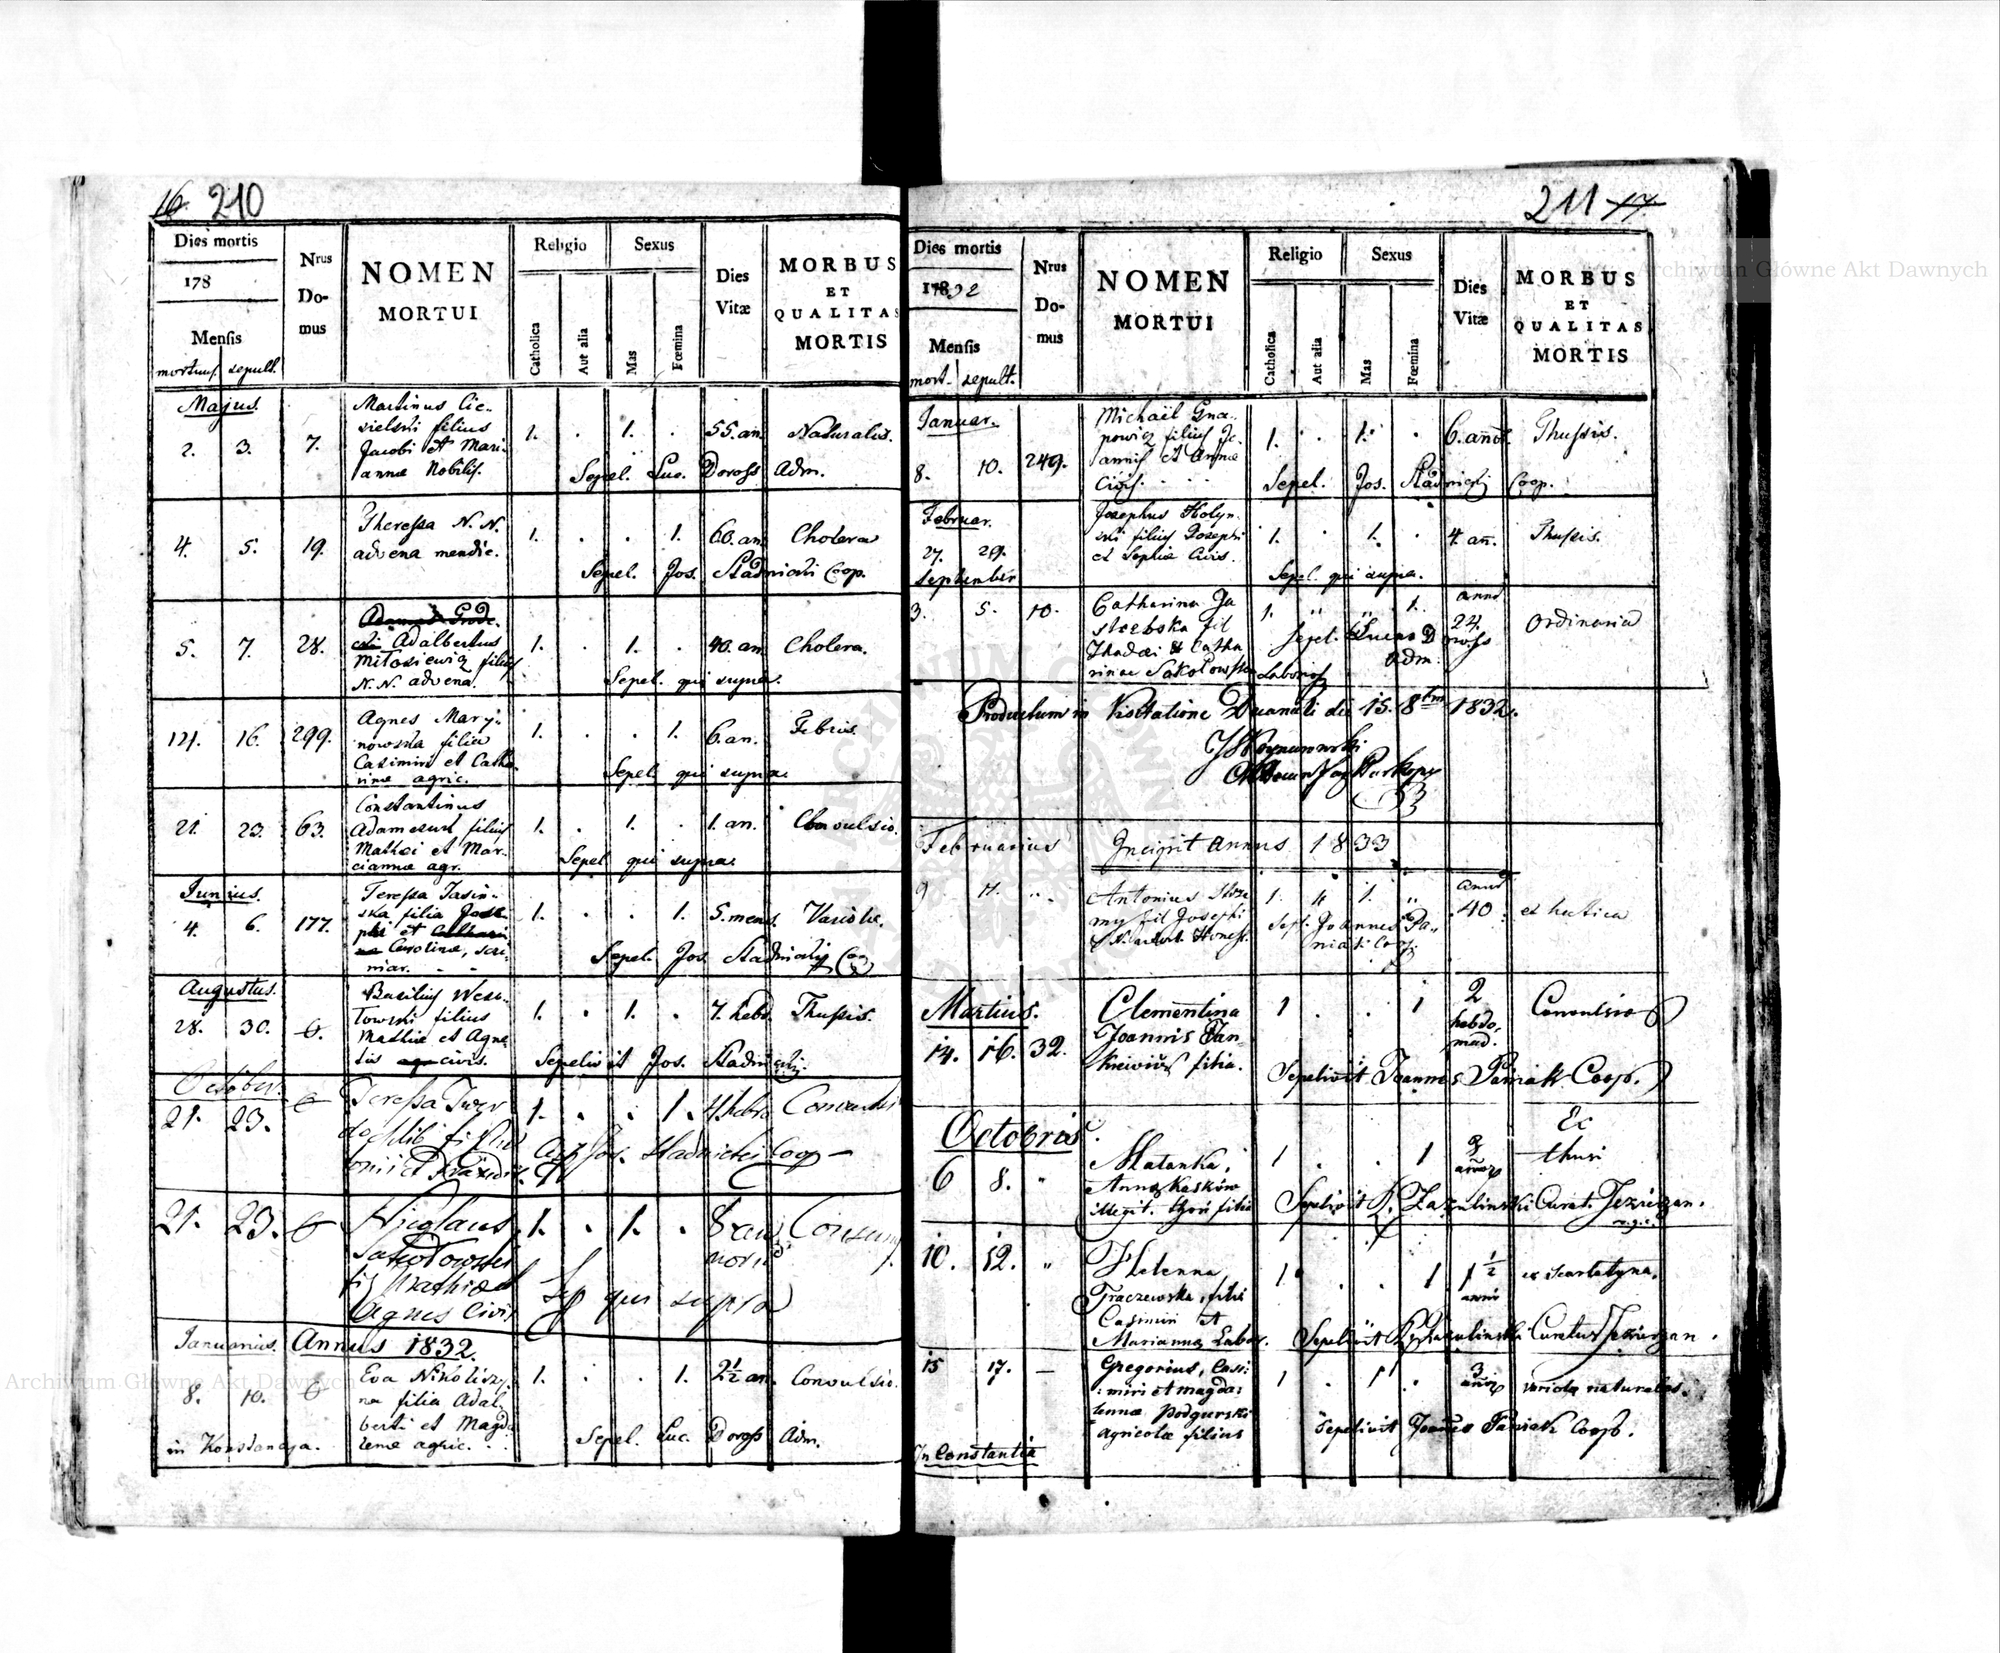 16. 210
Dies mortis
178
Mensis
mortuus. sepult.
Nrus
Do-
mus
NOMEN
MORTUI
Religio
Catholica
Aut alia
Sexus
Mas
Fœmina
Dies
Vitæ
MORBUS
ET
QUALITAS
MORTIS
Majus.
2. 3. 7.
Martinus Cie-
sielski filius
Jacobi et Mari-
annæ Nobilis.
1. . 1. . 55. an. Naturalis.
Sepel. Luc. Doross Adm.
4. 5. 19.
Theressa N. N.
advena mendic.
1. . . 1. 60. an. Cholera
Sepel. Jos. Stadnicki Coop.
5. 7. 28.
Adalbertus
Mitosiewicz filius
N. N. advena.
1. . 1. . 40. an. Cholera.
Sepel. qui supra.
14. 16. 299.
Agnes Mary-
nowska filia
Casimiri et Catha-
rinæ agric.
1. . . 1. 6. an. Febris.
Sepel. qui supra.
21. 23. 63.
Constantinus
Adamczuk filius
Mathei et Mar-
ciannæ agr.
1. . 1. . 1. an. Convulsio.
Sepel. qui supra.
Junius.
4. 6. 177.
Teressa Jasin-
ska filia
phi et
Carolinæ,
1. . . 1. 5. mens. Variolæ.
Sepel. Jos. Stadnicki Coop
Augustus.
28. 30.
Basilius Weso-
łowski filius
Mathiæ et Agne-
tis civis.
1. . 1. . 7. hebd. Thussis.
Sepelivit Jos. Stadnicki.
October.
21. 23.
Teressa
1. . . 1. 4. hebd
Jos. Stadnicki Coop
21. 23.
Nicolaus
Sokołowski
fil Mathiæ et
Agnes Civis
1. . 1. . 8
Sep qui supra
Januarius. Annus 1832.
8. 10.
Eva Nikoliszy-
na filia Adal-
berti et Magda-
lenæ agric.
1. . . 1. 2½ an. Convulsio.
in Konstancya.
Sepel. Luc. Doross Adm.
211 17
Dies mortis
1832
Mensis
mort. sepult.
Nrus
Do-
mus
NOMEN
MORTUI
Religio
Catholica
Aut alia
Sexus
Mas
Fœmina
Dies
Vitæ
MORBUS
ET
QUALITAS
MORTIS
Januar.
8. 10. 249.
Michaël Gna-
powicz filius Jo-
annis et Annæ
Civis.
1. . 1. . 6. Thussis.
Sepel. Jos. Stadnicki Coop.
Februar.
27. 29.
Josephus Holyn-
ski filius Josephi
et Sophiæ Civis.
1. . 1. . 4. an. Thussis.
Sepel. qui supra.
September
3. 5. 10.
Catharina Ja
strębska fil
Thadæi et Catha
rinæ Sokołowska Laborios
1. " " 1. anno 24. Ordinaria
Sepel. Lucas Doross
Adm.
Productum in Visitatione Decanali die 15. 8bris 1832.
Februarius Incipit annus 1833
9 11. "
Antonius
fil Josephi
1. " 1. " 40
Sep. Joannes Pa-
niak Coop.
Martius.
14. 16. 32.
Clementina
Joannis Jan-
kiewicz filia.
1 . . 1 2 hebdo- mad. Convulsio
Sepelivit Joannes Paniak Coop.
Octobris.
6 8. "
filia
1 . . 1 Ex
thusi
Sepelivit Zazulinski Curat. Jezierzan.
10. 12. "
Helenna
Traczewska, filia
Casimiri et
Marianna Labor.
1 . . 1 1½ anni ex Scarlatyna.
Sepelivit Zazulinski Curatus Jezierzan.
15 17. —
Gregorius, Casi-
miri et Magda-
lennæ Podgurski
agricolæ filius
1 . 1 . 3 variola naturales.
In Constantia
Sepelivit Joannes Paniak Coop.
Archiwum Główne Akt Dawnych
Archiwum Główne Akt Dawnych